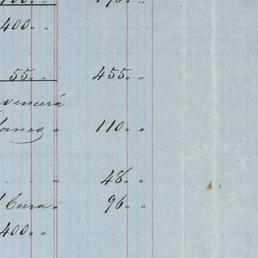 400 " "
55 " " 455 " "
vencerá
110 " "
48 " "
Cura " 96 " "
400 " "